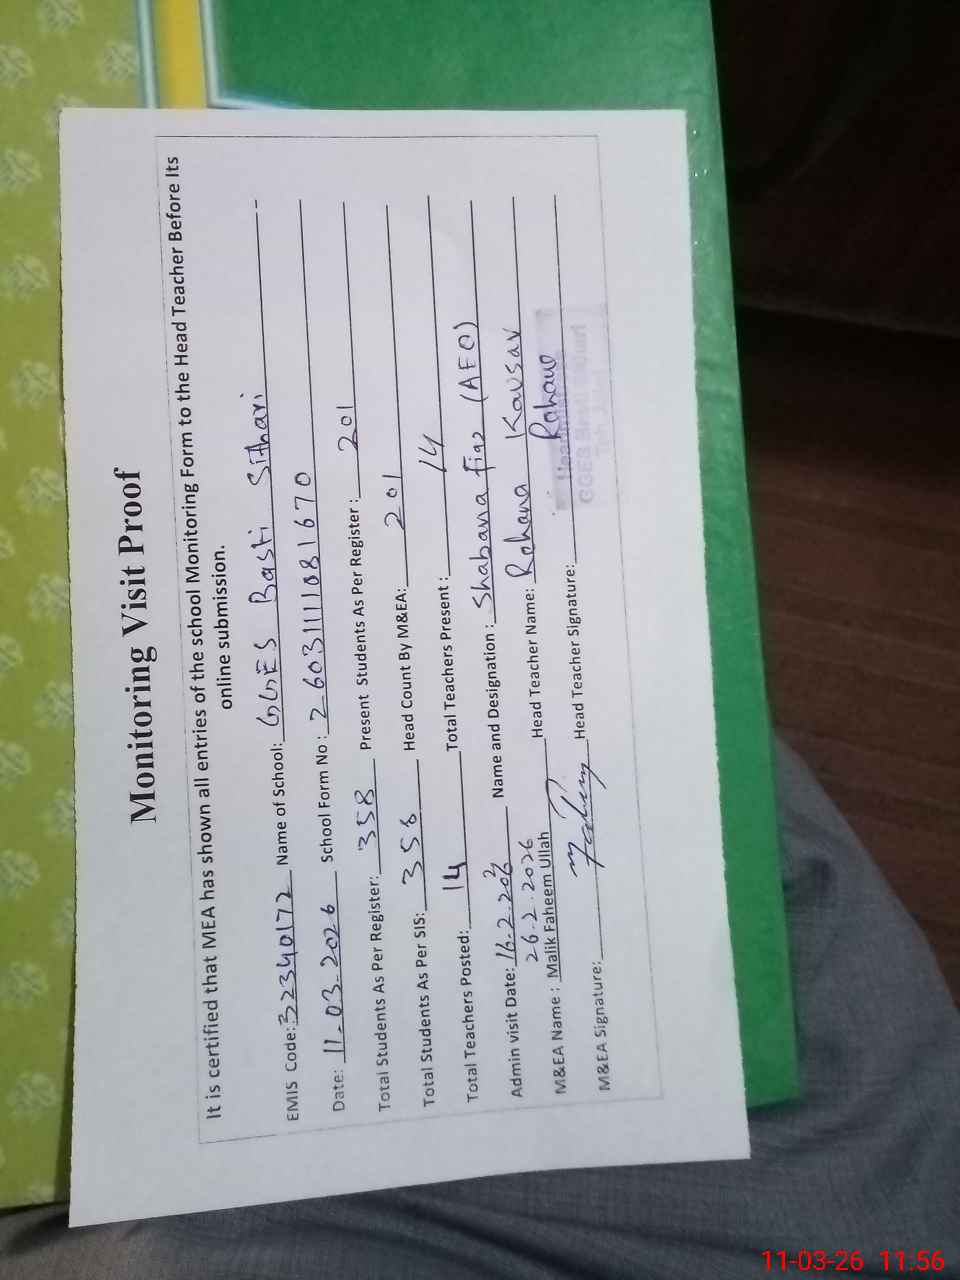 Monitoring Visit Proof
It is certified that MEA has shown all entries of the school Monitoring Form to the Head Teacher Before Its
online submission.
EMIS Code: 32340172 Name of School: GGES Basti Sithari
Date: 11-03-2026 School Form No: 2603111081670
Total Students As Per Register: 358 Present Students As Per Register: 201
Total Students As Per SIS: 358 Head Count By M&EA: 201
Total Teachers Posted: 14 Total Teachers Present: 14
Admin visit Date: 16-2-2026 Name and Designation: Shabana Fiaz (AEO)
26-2-2026
M&EA Name: Malik Faheem Ullah Head Teacher Name: Rehana Kausar
M&EA Signature: Head Teacher Signature: Rehana
GGES Basti
11-03-26 11.56